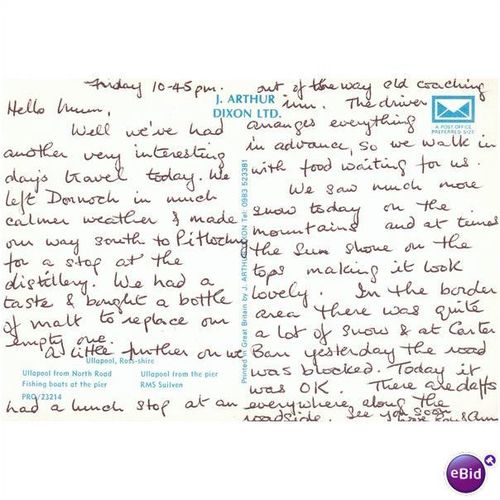 Friday 10-45pm.
Hello Mum,
Well we've had
another very interesting
days travel today. We
left Dornoch in much
calmer weather & made
our way south to Pitlochry
for a stop at the
distillery. We had a
taste & bought a bottle
of malt to replace our
empty one.
A little further on we
had a lunch stop at an
out of the way old coaching
inn. The driver
arranges everything
in advance, so we walk in
with food waiting for us.
We saw much more
snow today on the
mountains and at times
the sun shone on the
tops making it look
lovely. In the border
area there was quite
a lot of snow & at Carter
Barr yesterday the road
was blocked. Today it
was OK. There are daffs
everywhere along the
roadside. See you soon
J. ARTHUR
DIXON LTD.
A POST OFFICE
PREFERRED SIZE
Printed in Great Britain by J. ARTHUR DIXON Tel: 0983 523381
Ullapool, Ross-shire
Ullapool from North Road
Fishing boats at the pier
Ullapool from the pier
RMS Suilven
PRO/23214
eBid